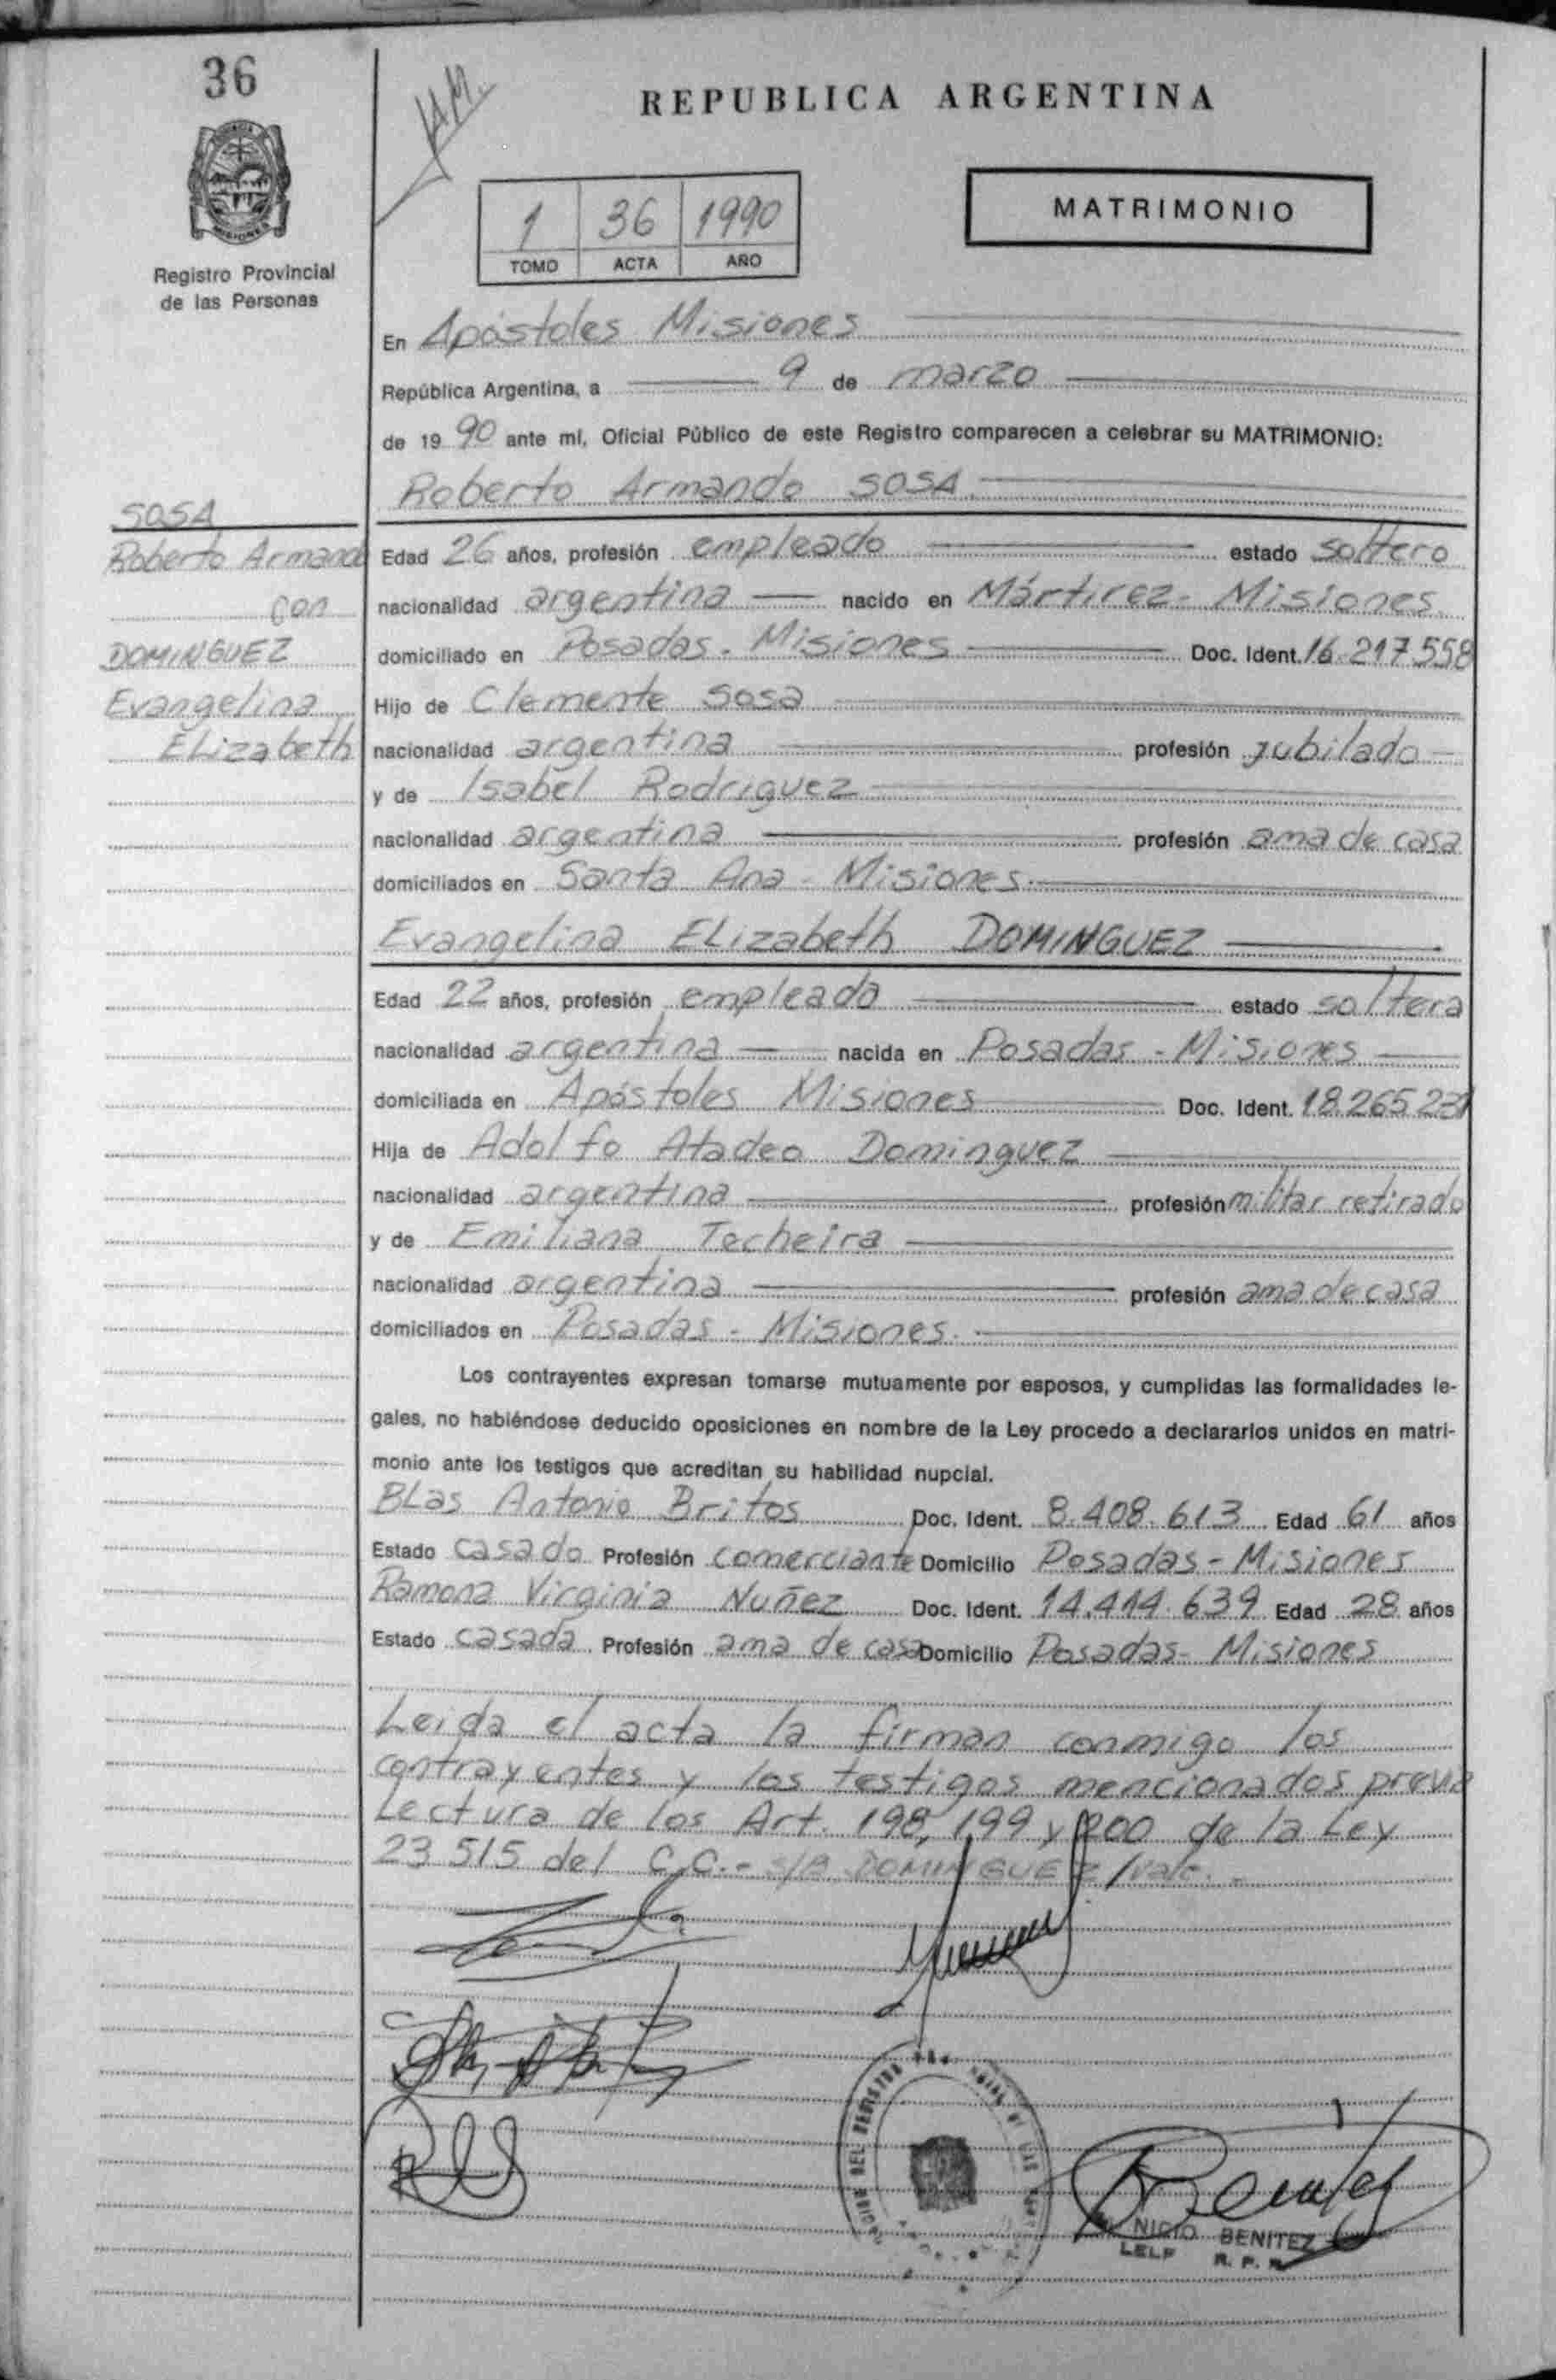 36
REPUBLICA ARGENTINA
MATRIMONIO
1 36 1990
TOMO ACTA AÑO
MISIONES
Registro Provincial
de las Personas
En Apóstoles Misiones
República Argentina, a 9 de marzo
de 19 90 ante mí, Oficial Público de este Registro comparecen a celebrar su MATRIMONIO:
Roberto Armando SOSA
SOSA
Roberto Armando
con
DOMINGUEZ
Evangelina
ELizabeth
Edad 26 años, profesión empleado estado soltero
nacionalidad argentina nacido en Mártirez - Misiones
domiciliado en Posadas - Misiones Doc. Ident. 16.217.558
Hijo de Clemente Sosa
nacionalidad argentina profesión jubilado
y de Isabel Rodriguez
nacionalidad argentina profesión ama de casa
domiciliados en Santa Ana - Misiones
Evangelina ELizabeth DOMINGUEZ
Edad 22 años, profesión empleada estado soltera
nacionalidad argentina nacida en Posadas - Misiones
domiciliada en Apóstoles Misiones Doc. Ident.
Hija de Adolfo Atadeo Dominguez
nacionalidad argentina profesión militar retirado
y de Emiliana Techeira
nacionalidad argentina profesión ama de casa
domiciliados en Posadas - Misiones.
Los contrayentes expresan tomarse mutuamente por esposos, y cumplidas las formalidades le-
gales, no habiéndose deducido oposiciones en nombre de la Ley procedo a declararlos unidos en matri-
monio ante los testigos que acreditan su habilidad nupcial.
BLas Antonio Britos Doc. Ident. 8.408.613 Edad 61 años
Estado casado Profesión comerciante Domicilio Posadas - Misiones
Ramona Virginia Nuñez Doc. Ident. 14.414.639 Edad 28 años
Estado casada Profesión ama de casa Domicilio Posadas - Misiones
Leida el acta la firman conmigo los
contrayentes y los testigos mencionados previa
Lectura de los Art. 198, 199 y 200 de la Ley
23 515 del C.C.- s/B DOMINGUEZ /vale.-
DEL REGISTRO
BENITEZ